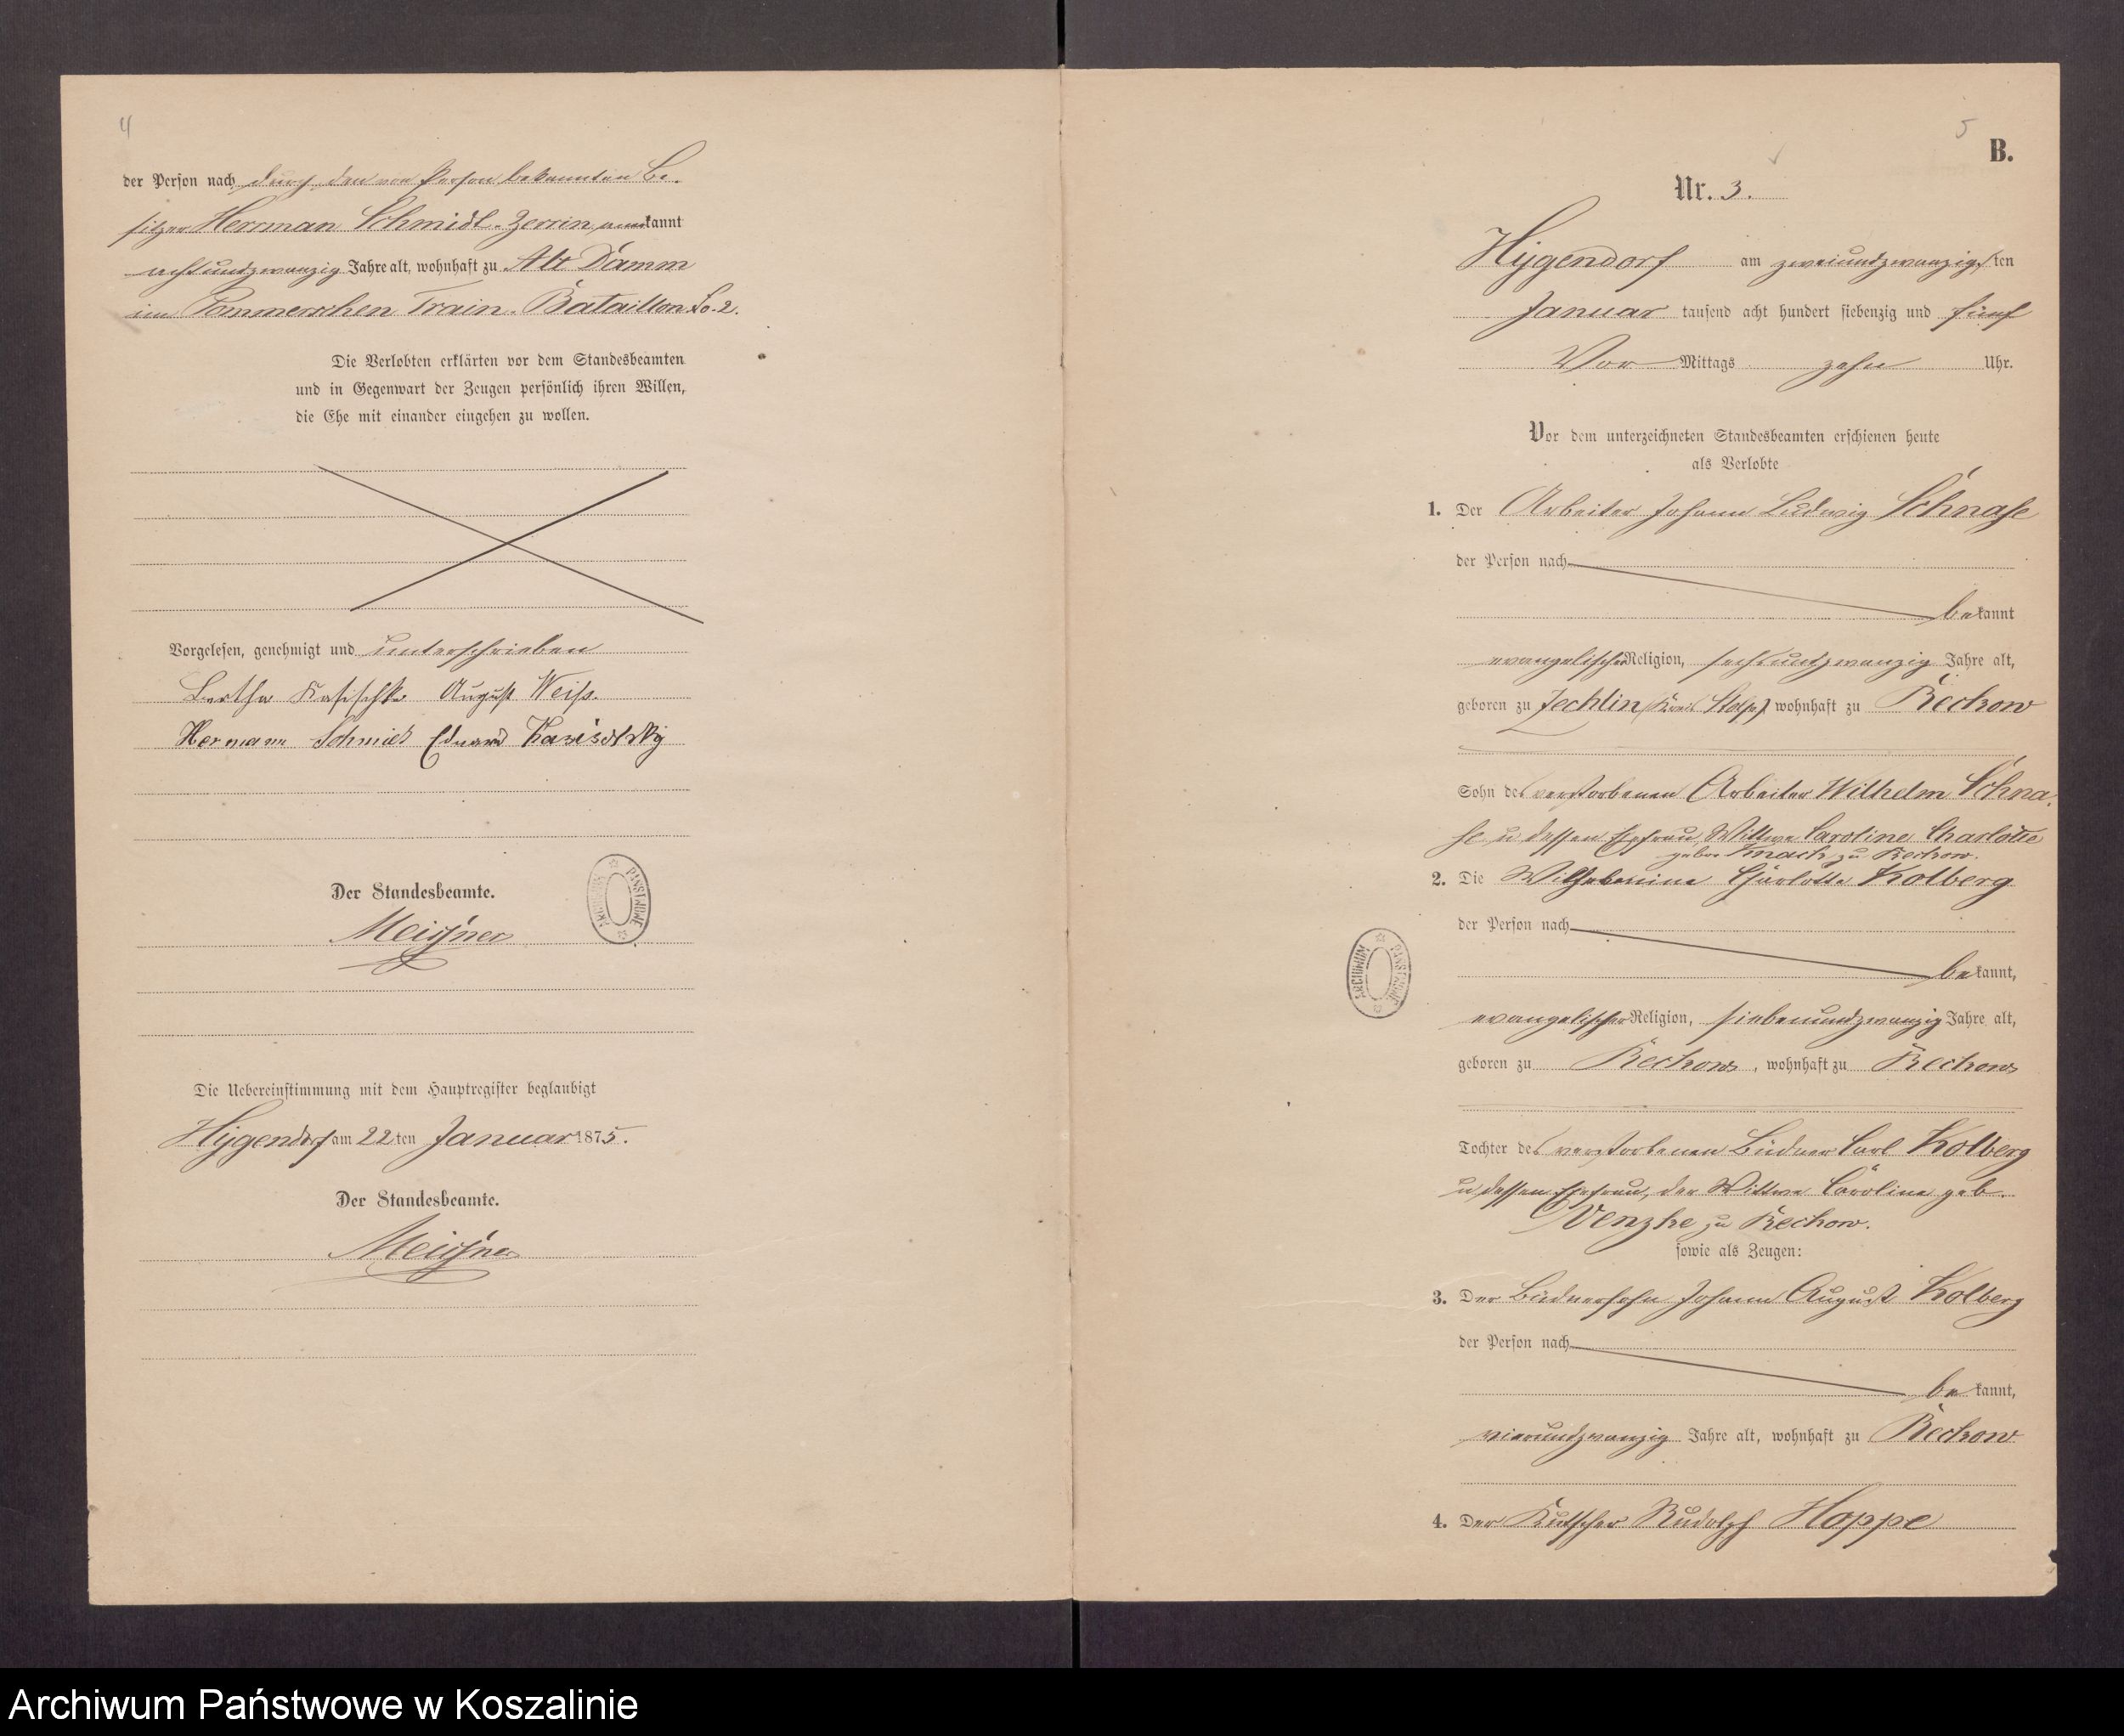 4
der Person nach durch den von Person bekannten Be-
sitzer Herrman Schmidt-Zerrin, anerkannt
achtundzwanzig Jahre alt, wohnhaft zu Alt Damm
im Pommerschen Train-Bataillon No. 2.
Die Verlobten erklärten vor dem Standesbeamten
und in Gegenwart der Zeugen persönlich ihren Willen,
die Ehe mit einander eingehen zu wollen.
Vorgelesen, genehmigt und unterschrieben
Bertha Kasischke August Weiß.
Hermann Schmidt Eduard Kasischky
Der Standesbeamte.
Meißner
ARCHIWUM PAŃSTWOWE
Die Uebereinstimmung mit dem Hauptregister beglaubigt
Hygendorf am 22ten Januar 1875.
Der Standesbeamte.
Meißner
5
B.
Nr. 3.
Hygendorf am zweiundzwanzigsten
Januar tausend acht hundert siebenzig und fünf
Vor Mittags zehn Uhr.
Vor dem unterzeichneten Standesbeamten erschienen heute
als Verlobte
1. Der Arbeiter Johann Ludwig Schnase
der Person nach
bekannt
evangelischer Religion, sechsundzwanzig Jahre alt,
geboren zu Jechlin (Kreis Stolp) wohnhaft zu Reckow
Sohn des verstorbenen Arbeiter Wilhelm Schna-
se u dessen Ehefrau, Wittwe Caroline Charlotte
gebor Knach zu Reckow.
2. Die Wilhelmine Charlotte Kolberg
der Person nach
bekannt,
evangelischer Religion, siebenundzwanzig Jahre alt,
geboren zu Reckow, wohnhaft zu Reckow
Tochter des verstorbenen Büdner Carl Kolberg
u dessen Ehefrau, der Wittwe Caroline geb.
Venzke zu Reckow.
sowie als Zeugen:
3. Der Büdnersohn Johann August Kolberg
der Person nach
bekannt,
vierundzwanzig Jahre alt, wohnhaft zu Reckow
4. Der Kutscher Rudolph Hoppe
ARCHIWUM PAŃSTWOWE
Archiwum Państwowe w Koszalinie